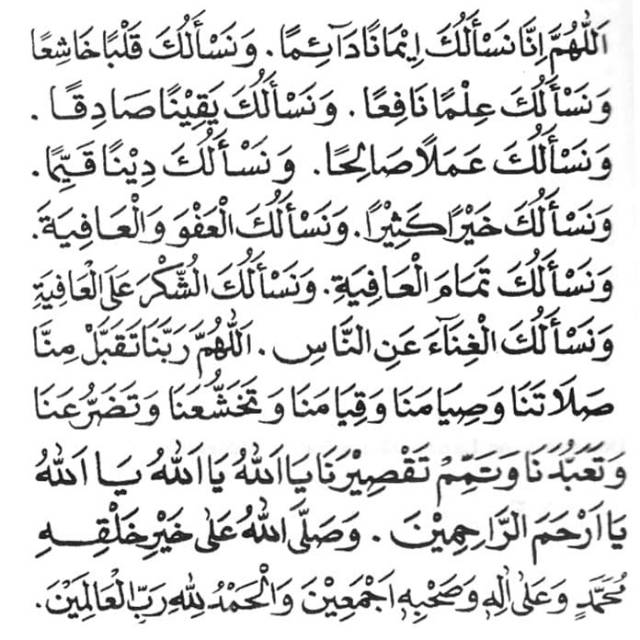 اَللّٰهُمَّ اِنَّا نَسْأَلُكَ اِيْمَانًا دَآئِمًا. وَنَسْأَلُكَ قَلْبًا خَاشِعًا
وَنَسْأَلُكَ عِلْمًا نَافِعًا. وَنَسْأَلُكَ يَقِيْنًا صَادِقًا.
وَنَسْأَلُكَ عَمَلًا صَالِحًا. وَنَسْأَلُكَ دِيْنًا قَيِّمًا.
وَنَسْأَلُكَ خَيْرًا كَثِيْرًا. وَنَسْأَلُكَ الْعَفْوَ وَالْعَافِيَةَ.
وَنَسْأَلُكَ تَمَامَ الْعَافِيَةِ. وَنَسْأَلُكَ الشُّكْرَ عَلَى الْعَافِيَةِ
وَنَسْأَلُكَ الْغِنَآءَ عَنِ النَّاسِ. اَللّٰهُمَّ رَبَّنَا تَقَبَّلْ مِنَّا
صَلَاتَنَا وَصِيَامَنَا وَقِيَامَنَا وَتَخَشُّعَنَا وَتَضَرُّعَنَا
وَتَعَبُّدَنَا وَتَمِّمْ تَقْصِيْرَنَا يَا اَللّٰهُ يَا اَللّٰهُ يَا اَللّٰهُ
يَا اَرْحَمَ الرَّاحِمِيْنَ. وَصَلَّى اللّٰهُ عَلٰى خَيْرِ خَلْقِهِ
مُحَمَّدٍ وَعَلٰى اٰلِهٖ وَصَحْبِهٖ اَجْمَعِيْنَ وَالْحَمْدُ لِلّٰهِ رَبِّ الْعَالَمِيْنَ.